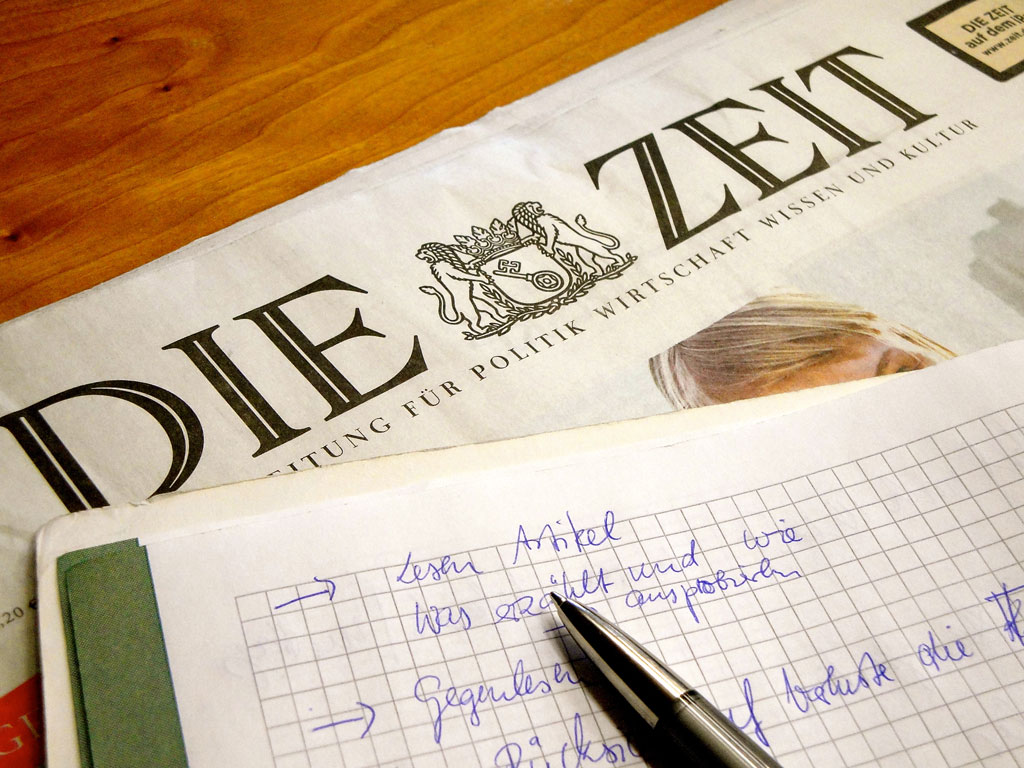 DIE ZEIT
auf dem iP
www.zeit.
DIE ZEIT
EITUNG FÜR POLITIK WIRTSCHAFT WISSEN UND KULTUR
,20 €
GI
→ Lesen Artikel
Was erzählt und wie
ausprobieren
→ Gegenlesen
auf die